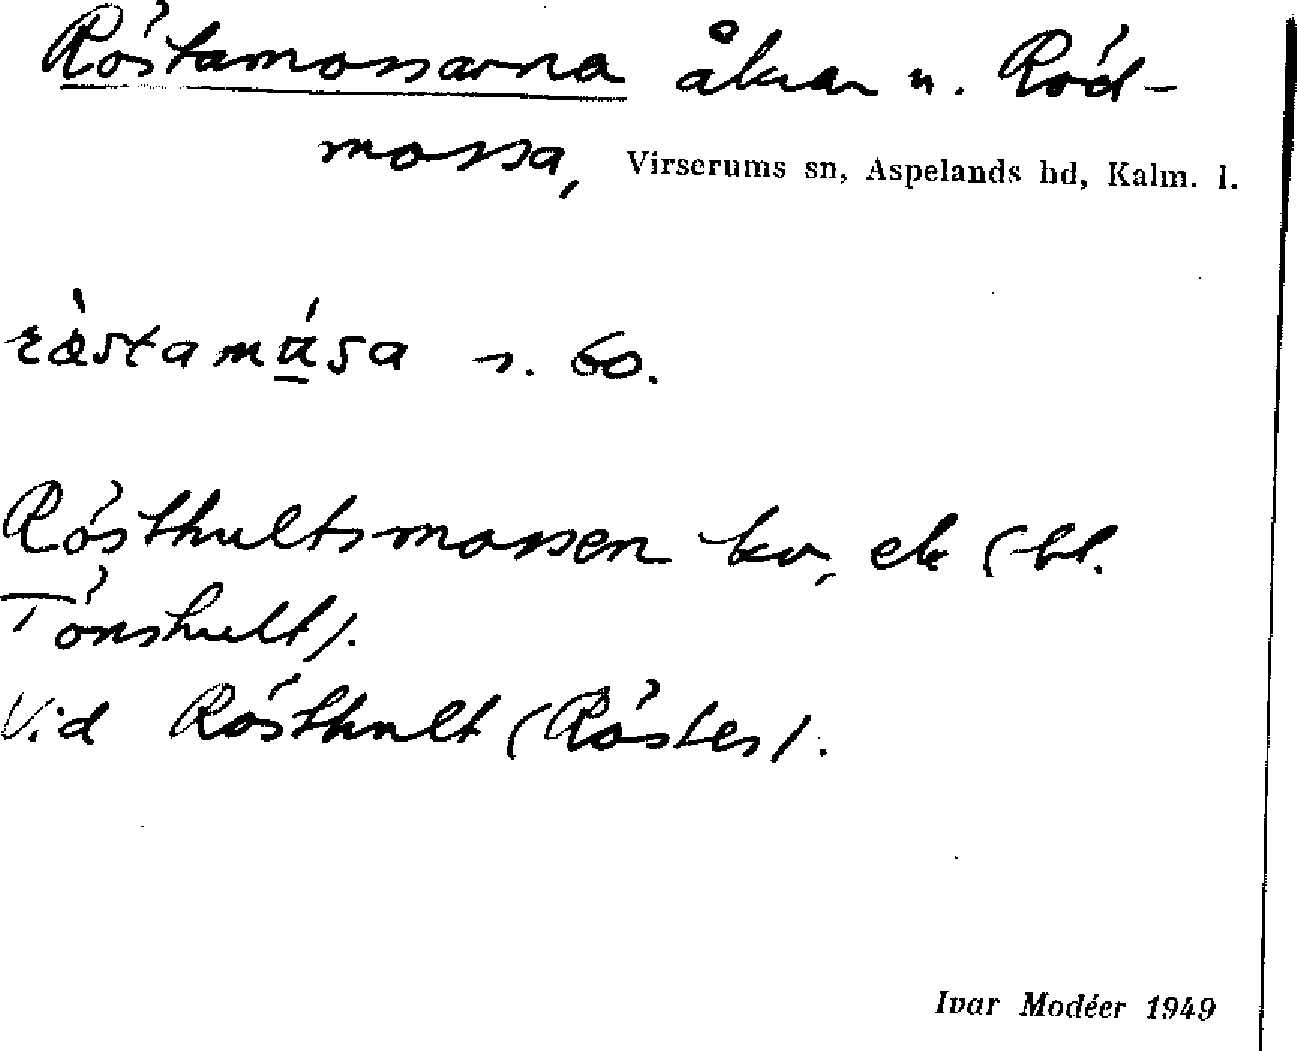 Röstamossarna åkrar u. Röd-
mossa, Virserums sn, Aspelands hd, Kalm. l.
Rösthultsmossen kv, ek (bl.
Tönshult).
Vid Rösthult (Röstes).
Ivar Modéer 1949